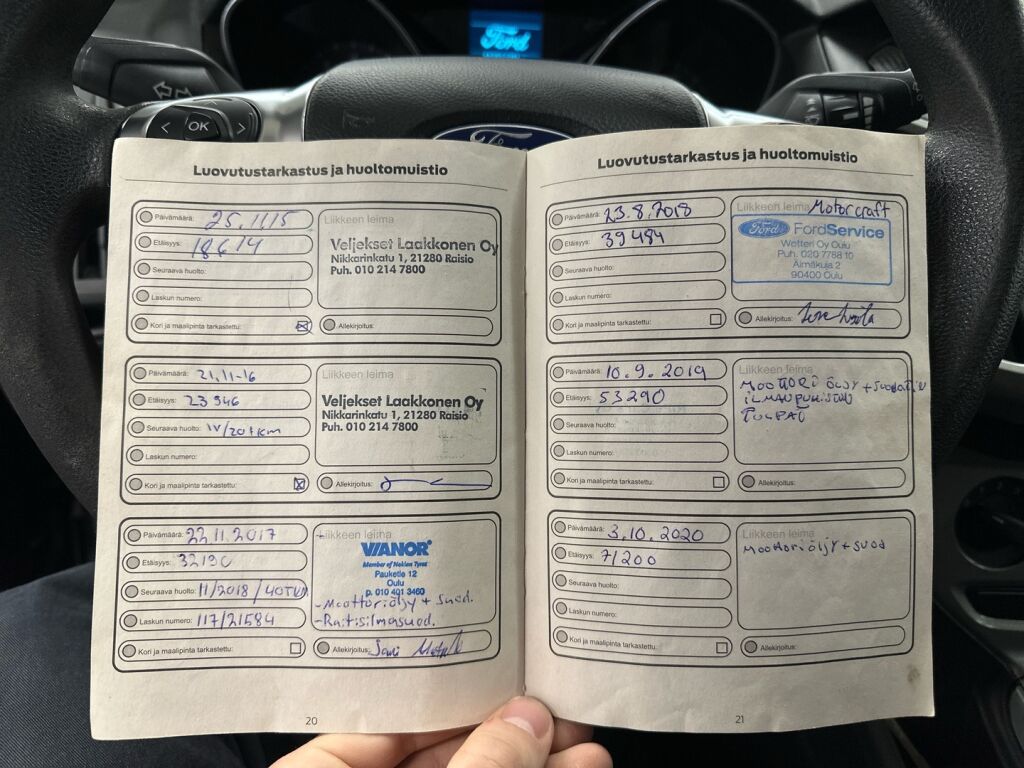 Ford
OK
Ford
Luovutustarkastus ja huoltomuistio
Päivämäärä: 25.11.15
Etäisyys: 18614
Seuraava huolto:
Laskun numero:
Kori ja maalipinta tarkastettu:
Liikkeen leima
Veljekset Laakkonen Oy
Nikkarinkatu 1, 21280 Raisio
Puh. 010 214 7800
Allekirjoitus:
Päivämäärä: 21.11-16
Etäisyys: 23946
Seuraava huolto: IV/20tkm
Laskun numero:
Kori ja maalipinta tarkastettu:
Liikkeen leima
Veljekset Laakkonen Oy
Nikkarinkatu 1, 21280 Raisio
Puh. 010 214 7800
Allekirjoitus:
Päivämäärä: 22.11.2017
Etäisyys: 32190
Seuraava huolto: 11/2018/40TKM
Laskun numero: 117/21584
Kori ja maalipinta tarkastettu:
Liikkeen leima
VIANOR
Member of Nokian Tyres
Pauketie 12
Oulu
p. 010 401 3460
-Moottoriöljy + suod.
-Raitisilmasuod.
Allekirjoitus:
20
Luovutustarkastus ja huoltomuistio
Päivämäärä: 23.8.2018
Etäisyys: 39484
Seuraava huolto:
Laskun numero:
Kori ja maalipinta tarkastettu:
Liikkeen leima Motorcraft
Ford FordService
Wetteri Oy Oulu
Puh. 020 7788 10
Äimäkuja 2
90400 Oulu
Allekirjoitus:
Päivämäärä: 10.9.2019
Etäisyys: 53290
Seuraava huolto:
Laskun numero:
Kori ja maalipinta tarkastettu:
Liikkeen leima
MOOTTORI ÖLJY + SUODATIN
ILMANPUHISTIN
TULPAT
Allekirjoitus:
Päivämäärä: 3.10.2020
Etäisyys: 71200
Seuraava huolto:
Laskun numero:
Kori ja maalipinta tarkastettu:
Liikkeen leima
Moottoriöljy + suod
Allekirjoitus:
21